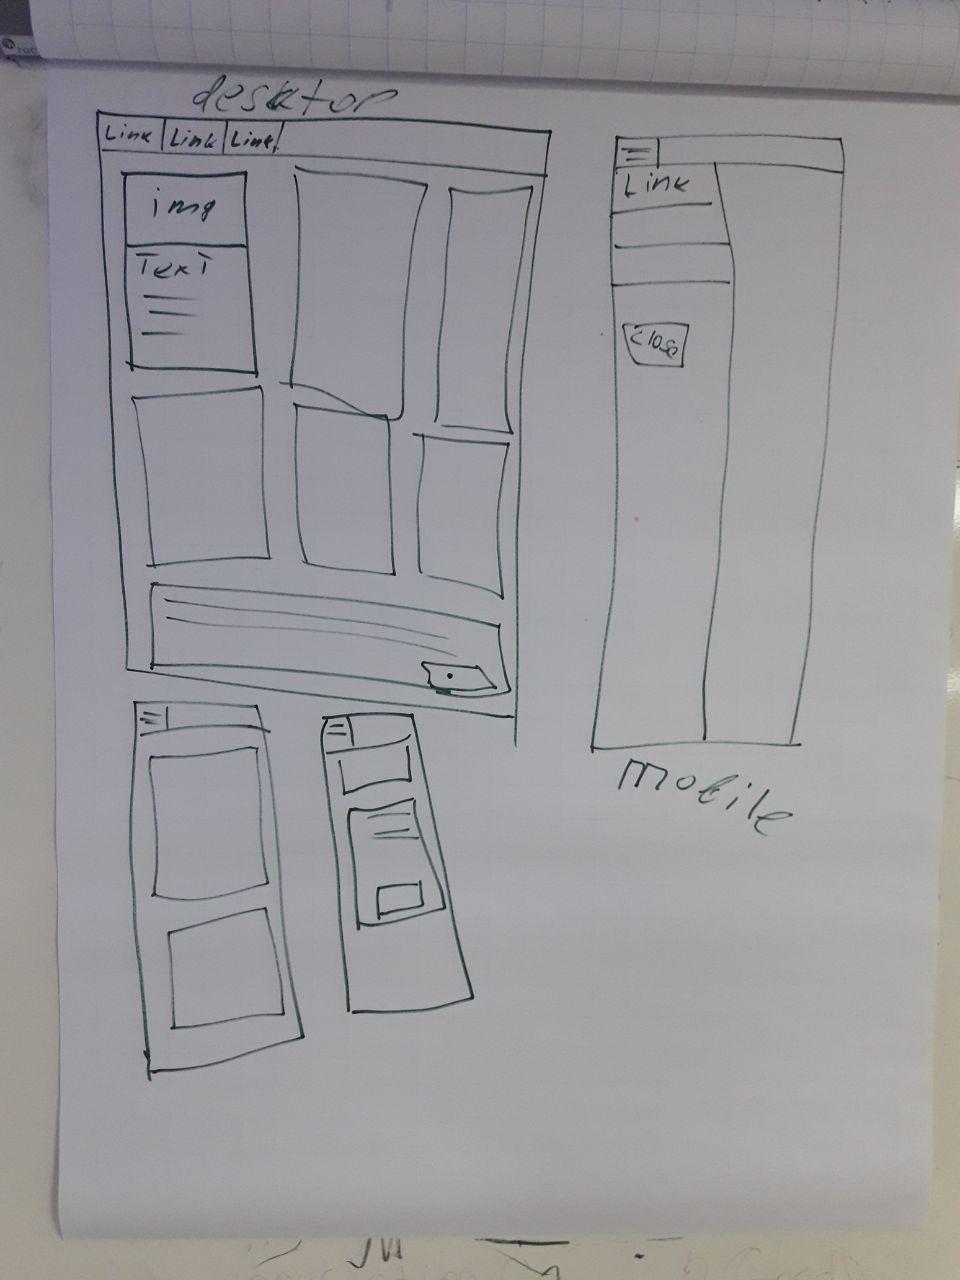 desktop
Link Link Link
img
Text
Link
close
mobile